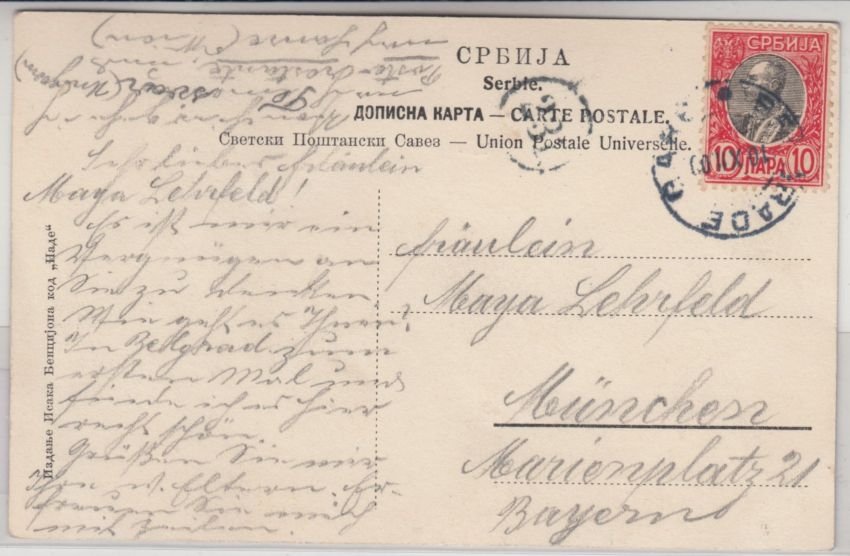 СРБИЈА
Serbie.
ДОПИСНА КАРТА — CARTE POSTALE.
Светски Поштански Савез — Union Postale Universelle.
СРБИЈА
10 ПАРА 10
BELGRADE
Издање Исака Бенцијона код „Наде“
Sehr liebes Fräulein
Maya Lehrfeld!
Es ist mir ein
Vergnügen an
Sie zu denken
Wie geht es Ihnen?
In Belgrad zum
ersten Mal und
finde ich es hier
recht schön.
Grüßen Sie mir
Ihre Eltern
Sie
Fräulein
Maya Lehrfeld
München
Marienplatz 21
Bayern
Poste restante